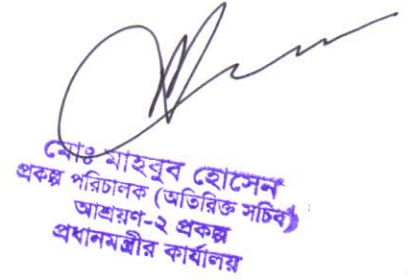 মোঃ মাহবুব হোসেন
প্রকল্প পরিচালক (অতিরিক্ত সচিব)
আশ্রয়ণ-২ প্রকল্প
প্রধানমন্ত্রীর কার্যালয়